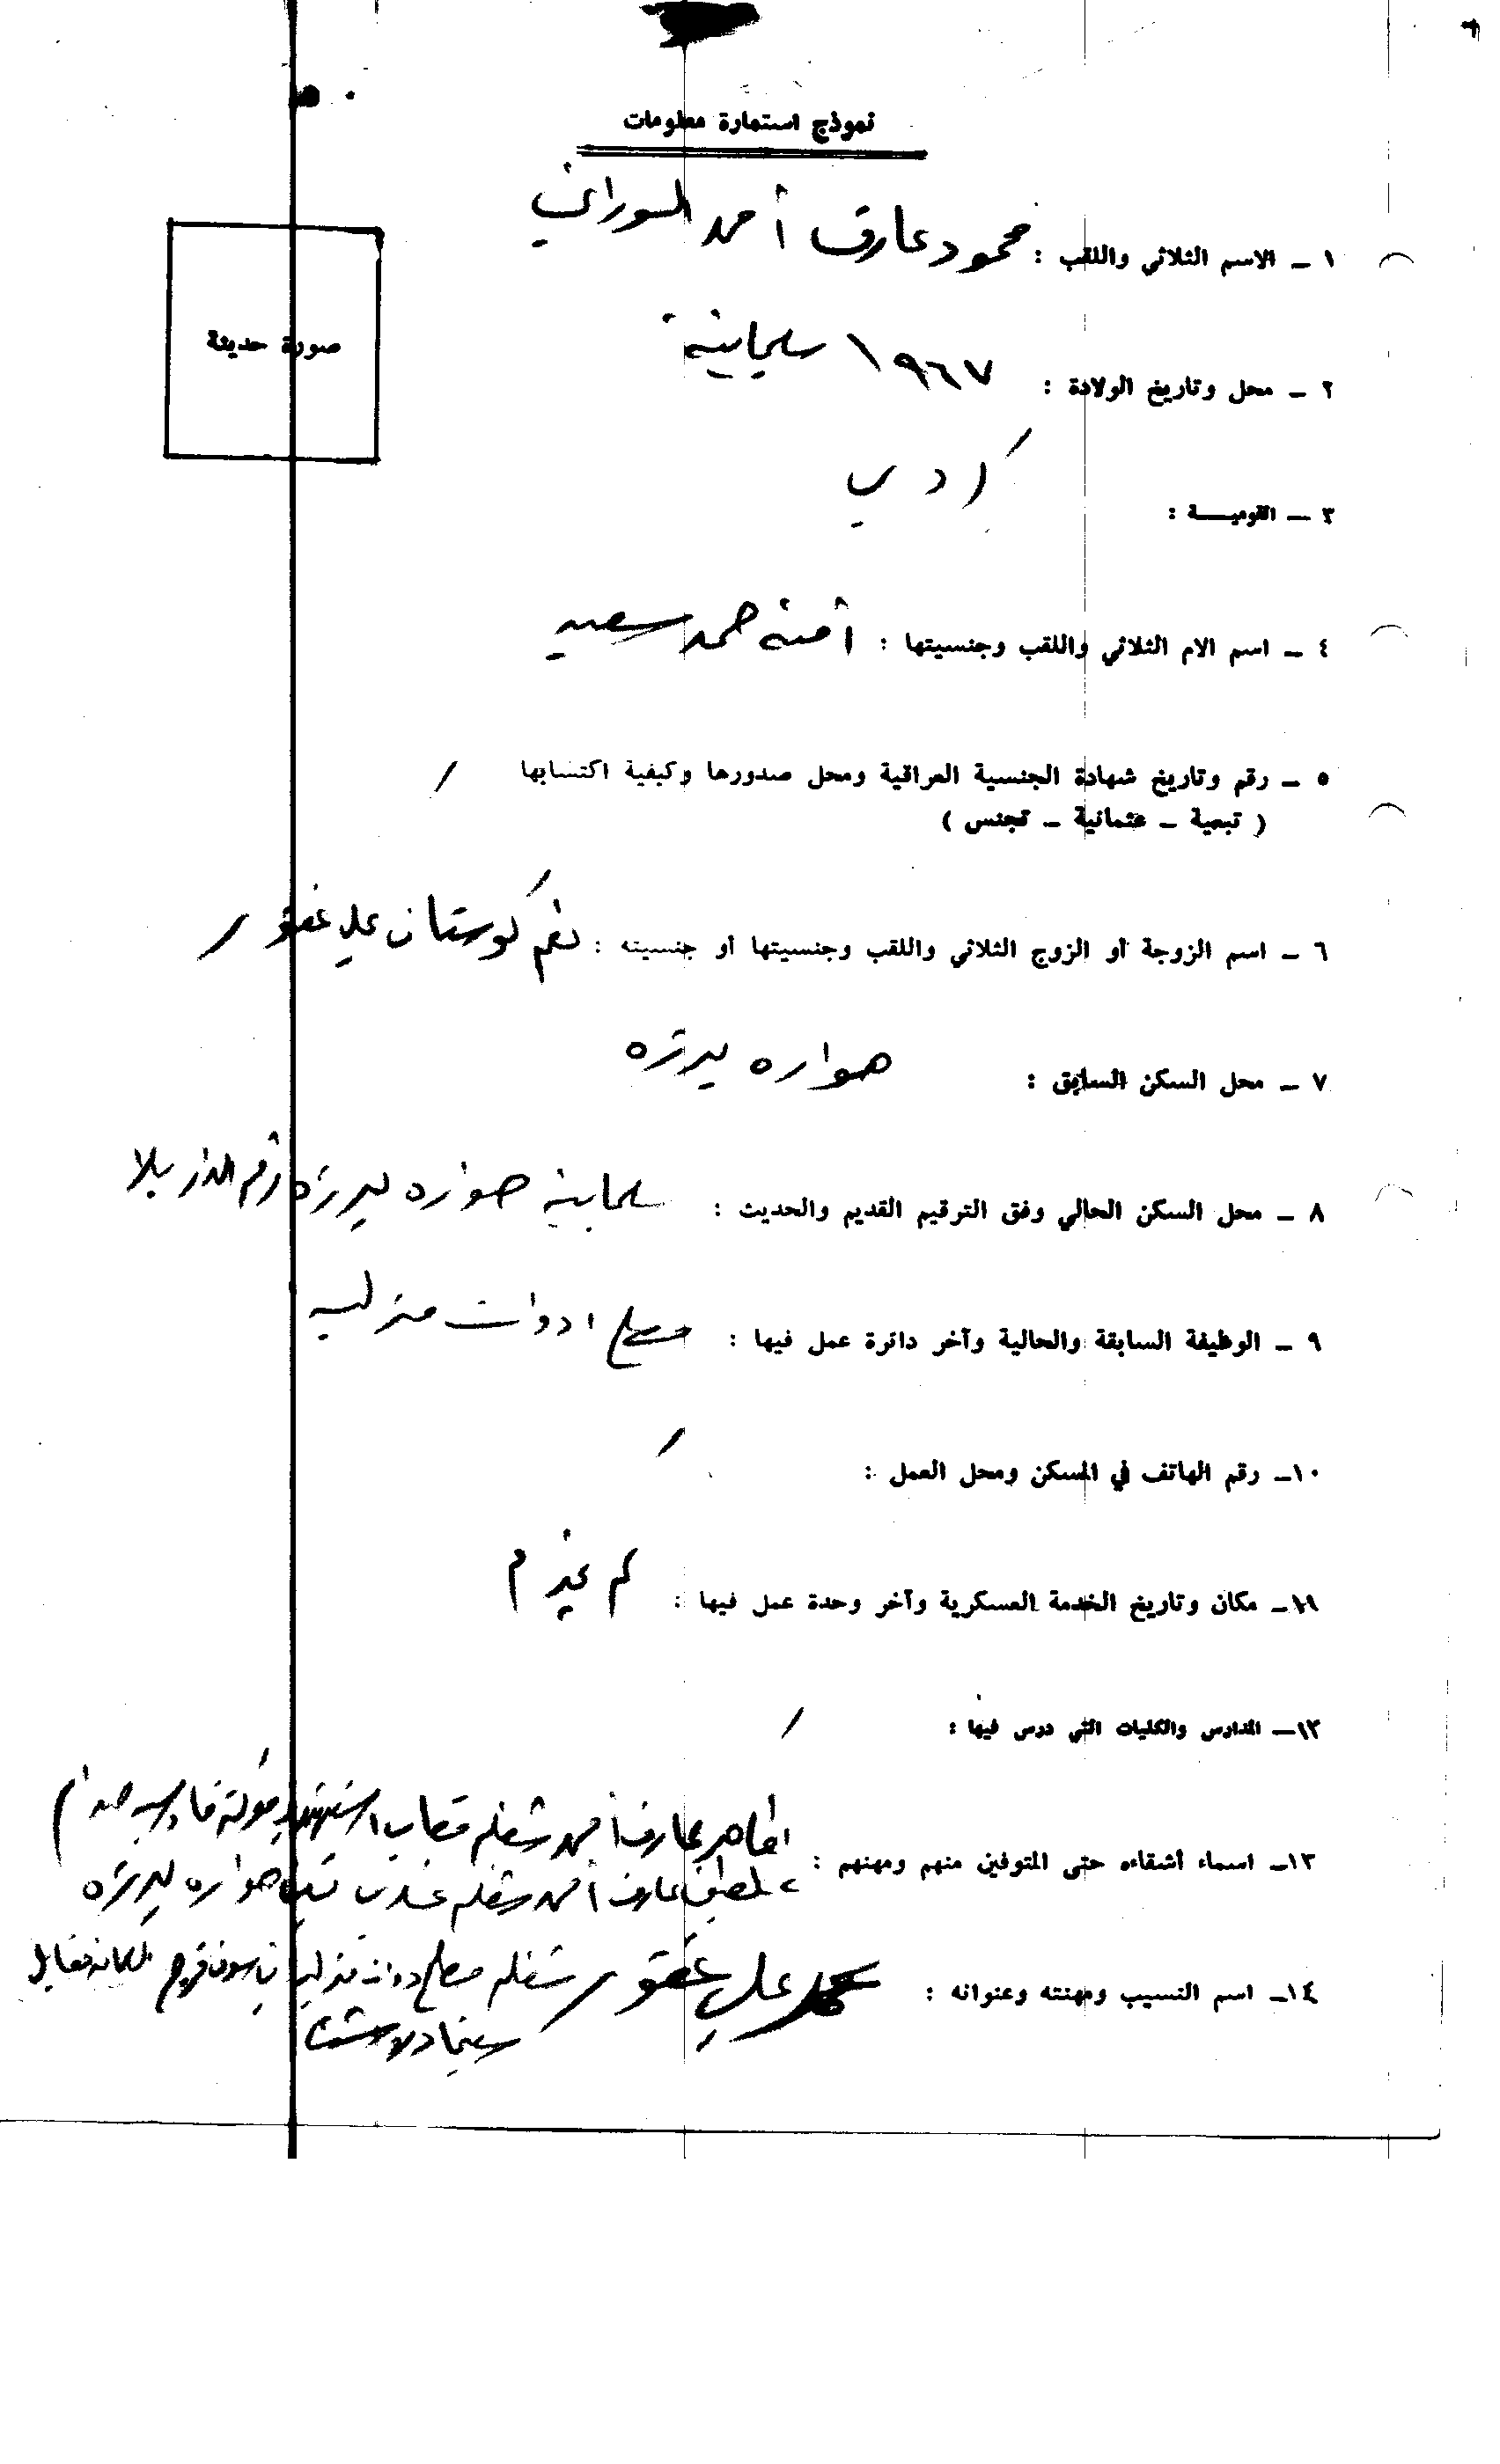 نموذج استمارة معلومات
صورة حديثة
١ - الاسم الثلاثي واللقب : محمود عارف أحمد السوراني
٢ - محل وتاريخ الولادة : ١٩٦٧ سليمانية
٣ - القوميـــة : كردي
٤ - اسم الام الثلاثي واللقب وجنسيتها : آمنة حمد سعيد
٥ - رقم وتاريخ شهادة الجنسية العراقية ومحل صدورها وكيفية اكتسابها /
( تبعية - عثمانية - تجنس )
٦ - اسم الزوجة أو الزوج الثلاثي واللقب وجنسيتها أو جنسيته : نعم كوستان علي غفور
٧ - محل السكن السابق : هواره برزه
٨ - محل السكن الحالي وفق الترقيم القديم والحديث : سليمانية هواره برزه رقم الدار بلا
٩ - الوظيفة السابقة والحالية وآخر دائرة عمل فيها : مصلح ادوات منزلية
١٠- رقم الهاتف في المسكن ومحل العمل : /
١١- مكان وتاريخ الخدمة العسكرية وآخر وحدة عمل فيها : لم يخدم
١٢- المدارس والكليات التي درس فيها : /
١٣- اسماء أشقاءه حتى المتوفين منهم ومهنهم : عارف أحمد شغله قصاب استشهد صدام
لطيف عارف أحمد شغله هواره برزه
١٤- اسم النسيب ومهنته وعنوانه : محمد علي غفور شغله مصلح ادوات منزلية مقابل
سينما